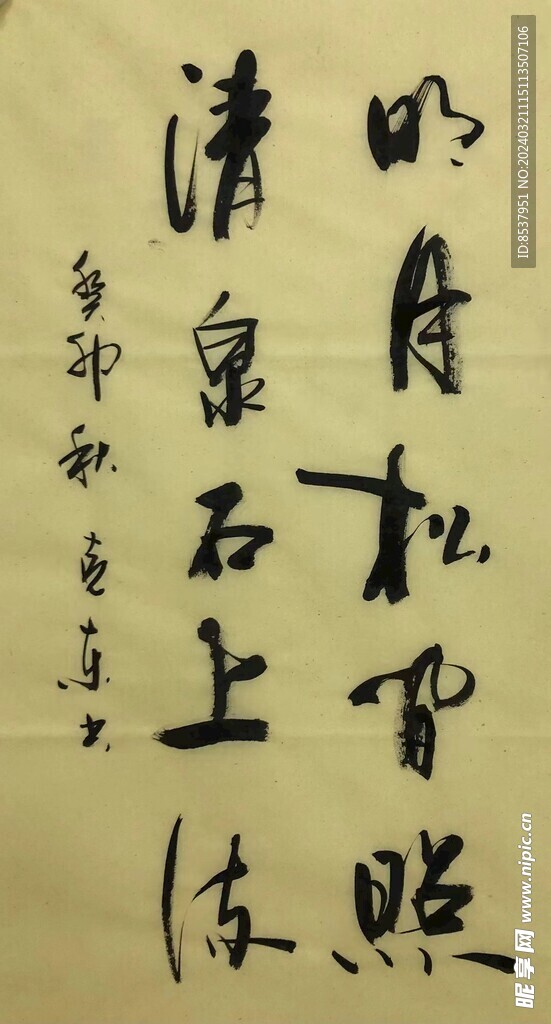 明月松间照
清泉石上流
癸卯秋克东书
ID:8537951 NO:20240321115113507106
昵享网 www.nipic.cn